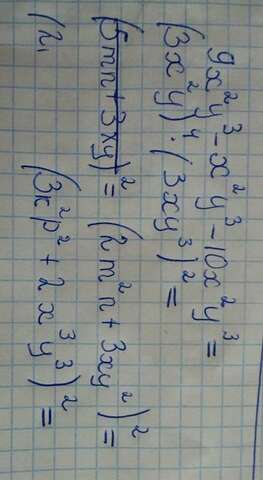 9x²y³ - x²y³ - 10x²y³ =
(3x²y)⁴ · (3xy³)² =
(5mn + 3xy)² = (2m²n + 3xy²)² =
(2, (3k²p² + 2x³y³)² =